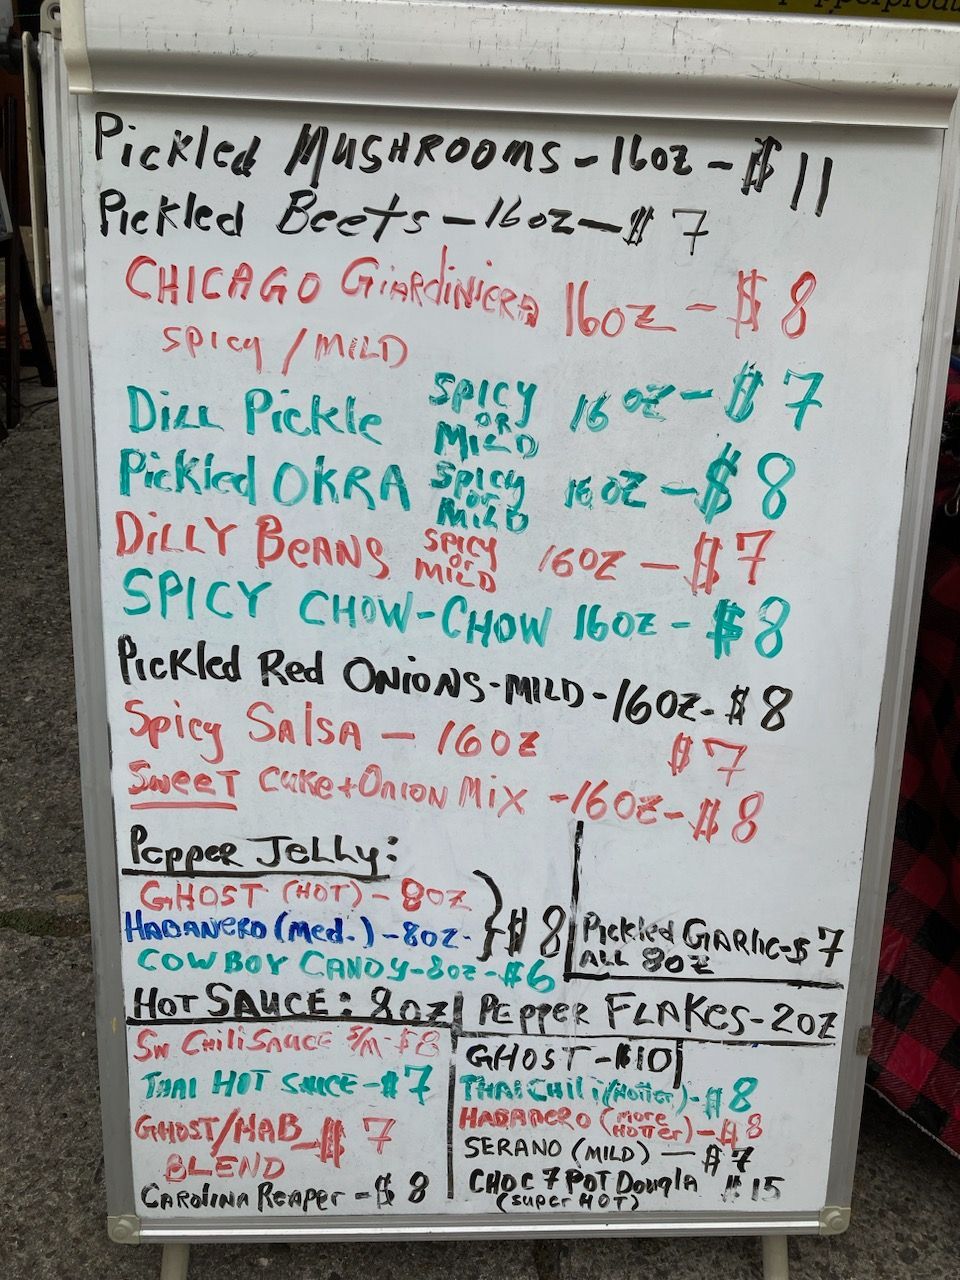 Pickled MUSHROOMS - 16oz - $11
Pickled Beets - 16oz - $7
CHICAGO GiARDiNiERA 16oz - $8
spicy / MILD
DILL Pickle SPICY OR MILD 16oz - $7
Pickled OKRA SPICY or MILD 16oz - $8
DiLLY BeANS SPICY or MILD 16oz - $7
SPICY CHOW-CHOW 16oz - $8
Pickled Red ONiONS - MILD - 16oz - $8
Spicy SAlSA - 16oz $7
SWEET Cuke + Onion Mix - 16oz - $8
Pepper Jelly:
GHOST (HOT) - 8oz
HABANERO (Med.) - 8oz. } $8
COWBOY CANDY - 8oz - $6
Pickled GARlic - $7
ALL 8oz
HOT SAUCE: 8oz
SW CHiLi SAUCE S/M - $8
THAI HOT SAUCE - $7
GHOST/HAB - $7
BLEND
CAROLINA ReAPeR - $8
PEPPER FLAKES - 2oz
GHOST - $10
THAI CHiLi (Hotter) - $8
HABANERO (more HOTTER) - $8
SERANO (MILD) - $7
CHOC 7 POT Dougla $15
(super HOT)